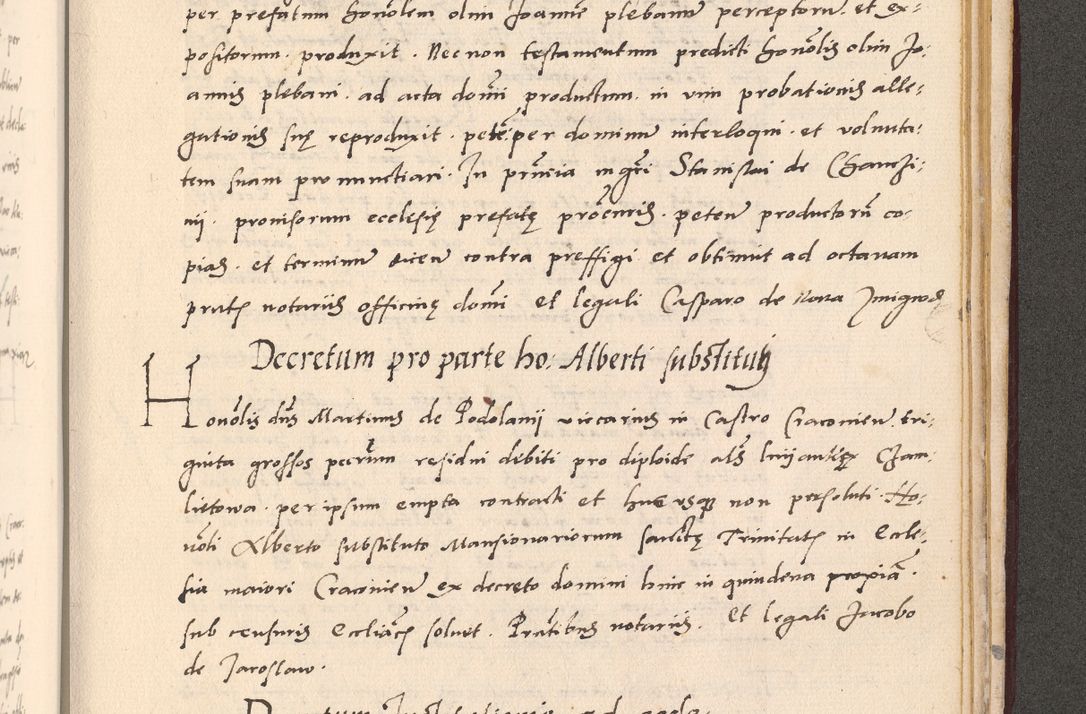 per prefatum honolem olim Joannē plebanū perceptorū. et ex-
positorum. produxit. Nec non testamentum predicti honolis olim Jo-
annis plebani. ad acta domini productum. in vim probationis alle-
gationis suę reproduxit. petēs per dominū interloqui. et volunta-
tem suam pronunctiari. In pn̄cia mgri Stanislai de
nij. provisorum ecclesię prefatę procuris. peteñ productorū co-
pias. et terminū dicen contra preffigi et obtinuit ad octavam
pn̄tibus notariis officinę domini et legali Casparo de Nova
Decretum pro parte ho: Alberti substituti
Honolis dn̄s Martinus de Podolanij vicarius in Castro Cracovien. tri-
ginta grossos pecun residui debiti pro diploide als
per ipsum empta contracti et huc usque non persoluti Ho-
noli Alberto substituto Mansionariorum sanctę Trinitatis in Eccle-
sia maiori Cracovien ex decreto domini hinc in quindena proxiā.
sub censuris Eccliacis solvet. Pn̄tibus notariis. et legali Jacobo
de Jaroslaw.